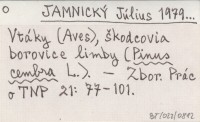 JAMNICKÝ Július 1979...
Vtáky (Aves), škodcovia
borovice limby (Pinus
cembra L.). — Zbor. Prác
o TNP 21: 77-101.